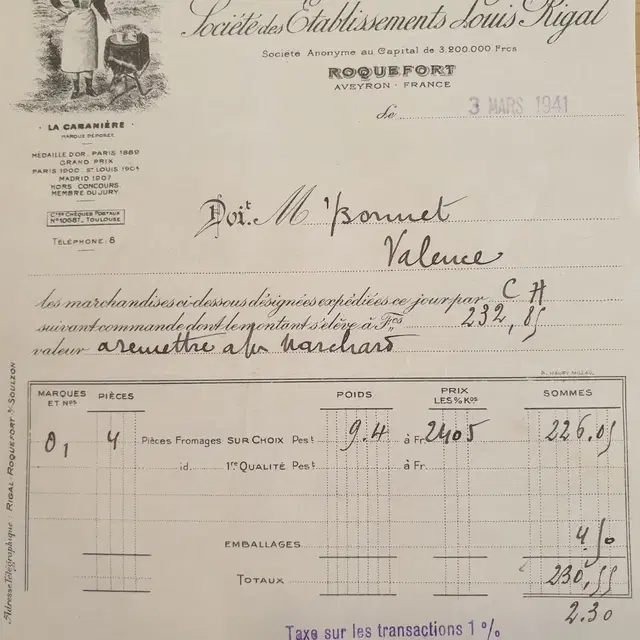 Société des Etablissements Louis Rigal
Société Anonyme au Capital de 3.200.000 Frcs
ROQUEFORT
AVEYRON · FRANCE
Le 3 MARS 1941
· LA CABANIÈRE ·
MARQUE DÉPOSÉE
MÉDAILLE D'OR, PARIS 1889
GRAND PRIX
PARIS 1900, St LOUIS 1904
MADRID 1907
HORS CONCOURS
MEMBRE DU JURY
Cte CHÈQUES POSTAUX
No 10687, TOULOUSE
TÉLÉPHONE: 8
Doit M r Bonnet
Valence
les marchandises ci-dessous désignées expédiées ce jour par C H
suivant commande dont le montant s'élève à Frcs 232,85
valeur a remettre a
MARQUES ET Nos PIÈCES POIDS PRIX LES % KOS SOMMES
01 4 Pièces Fromages SUR CHOIX Pest 9.4 à Fr. 2405 226.05
id. 1re QUALITÉ Pest à Fr.
EMBALLAGES 4,50
TOTAUX 230,55
2.30
Taxe sur les transactions 1 %
Adresse Télégraphique : RIGAL ROQUEFORT S/ SOULZON